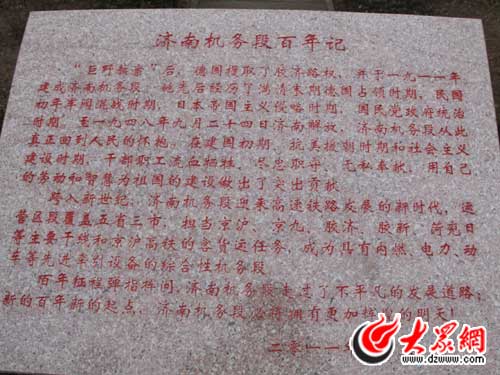 济南机务段百年记
“巨野教案”后，德国攫取了胶济路权，并于一九一一年
建成济南机务段。她先后经历了满清末期德国占领时期、民国
初年军阀混战时期、日本帝国主义侵略时期、国民党政府统治
时期。至一九四八年九月二十四日济南解放，济南机务段从此
真正回到人民的怀抱。在建国初期、抗美援朝时期和社会主义
建设时期，干部职工流血牺牲、尽忠职守、无私奉献，用自己
的劳动和智慧为祖国的建设做出了突出贡献
跨入新世纪，济南机务段迎来高速铁路发展的新时代，运
营区段覆盖五省三市，担当京沪、京九、胶济、胶新、菏兖日
等主要干线和京沪高铁的客货运任务，成为具有内燃、电力、动
车等先进牵引设备的综合性机务段
百年征程弹指挥间，济南机务段走过了不平凡的发展道路；
新的百年新的起点，济南机务段必将拥有更加辉 的明天！
二零一一
大众网
www.dzwww.com